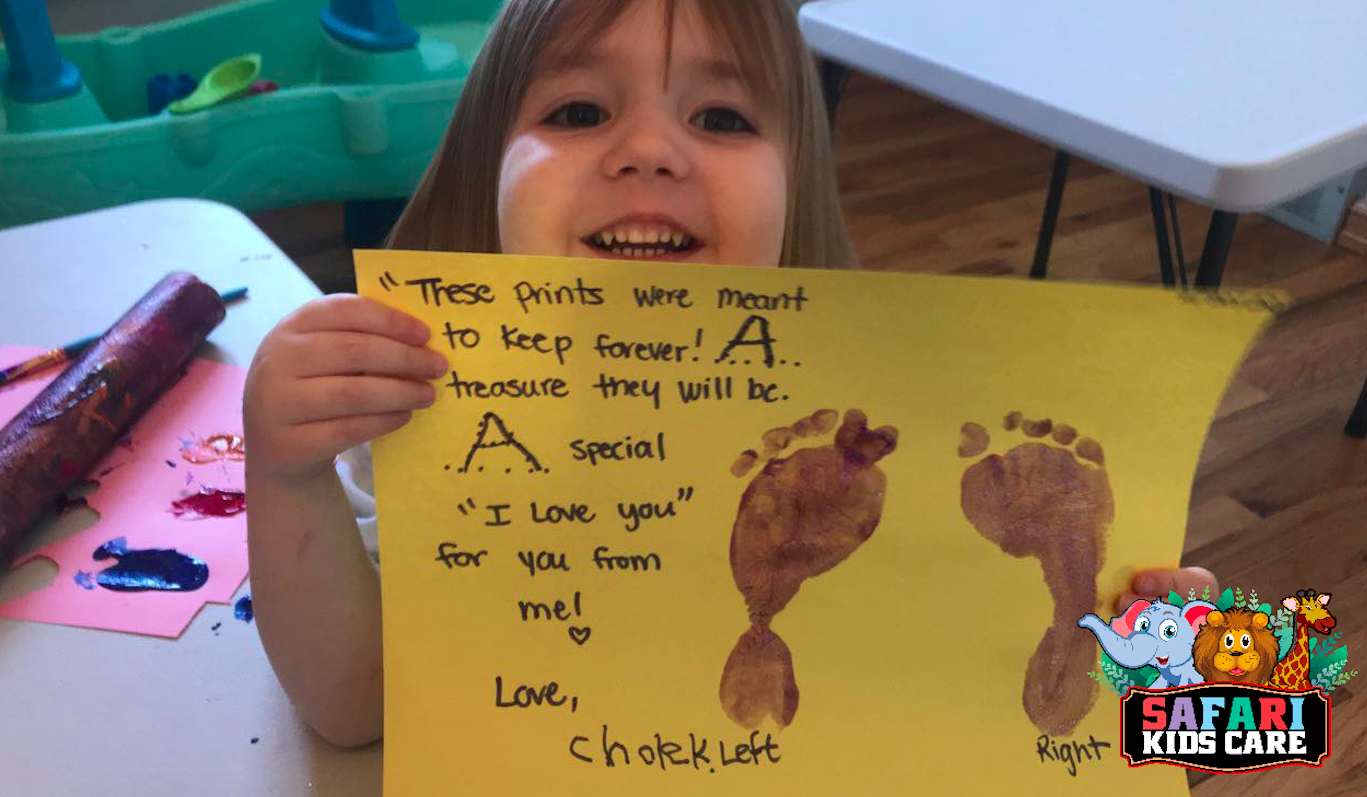 "These prints were meant
to keep forever! A
treasure they will be.
A special
"I Love you"
for you from
me!
Love,
Left
Right
SAFARI
KIDS CARE